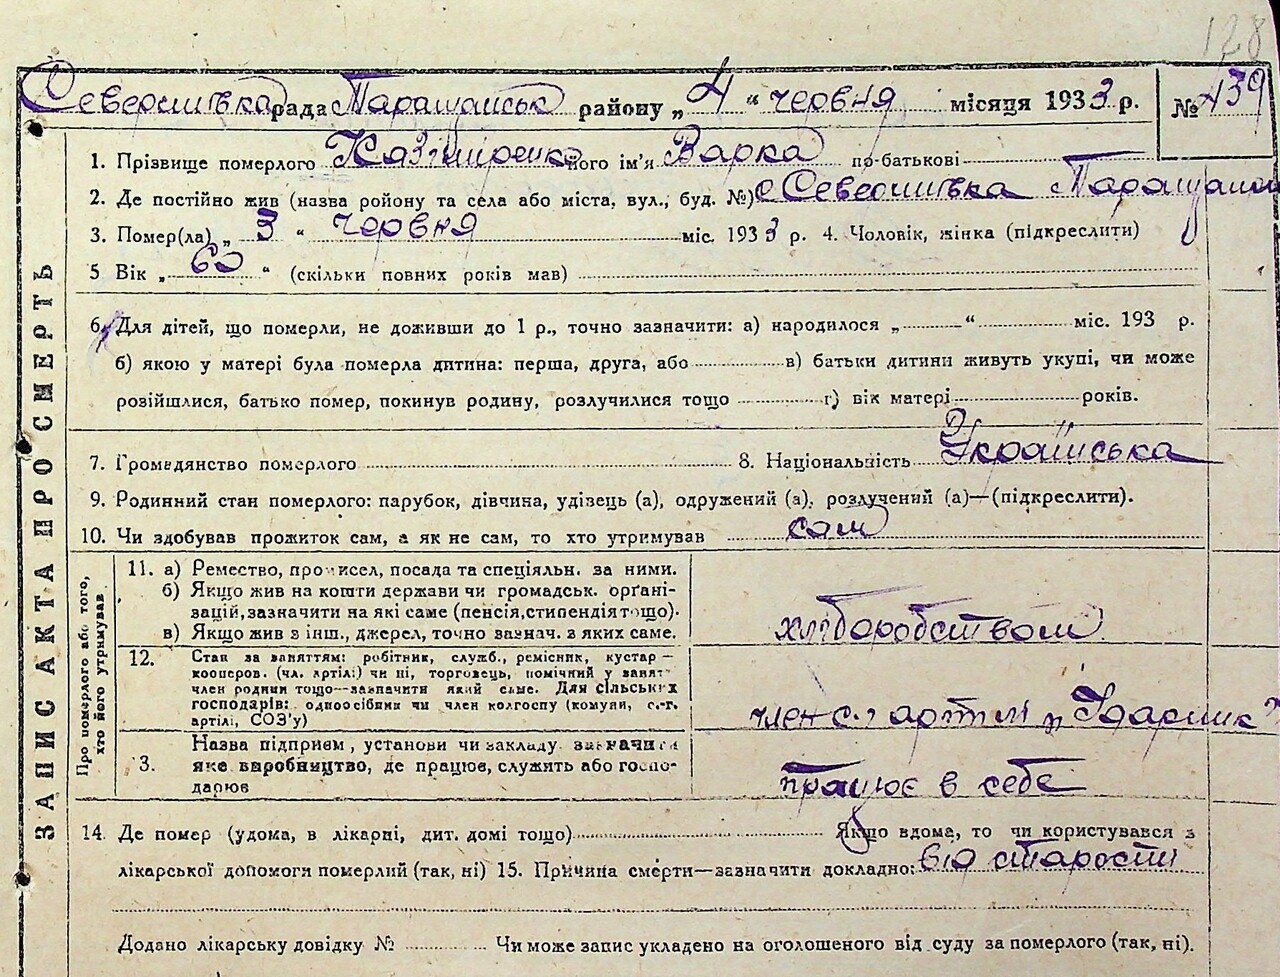 128
Северинівка рада Таращанськ району „ 4 “ червня місяця 1933 р. № 439
1. Прізвище померлого Казіміренко його ім'я Варка по-батькові
2. Де постійно жив (назва району та села або міста, вул., буд. №) с Северинівка Таращанськ
3. Помер(ла) „ 3 “ червня міс. 1933 р. 4. Чоловік, жінка (підкреслити)
5 Вік „ 60 “ (скільки повних років мав)
6. Для дітей, що померли, не доживши до 1 р., точно зазначити: а) народилося „ “ міс. 193 р.
б) якою у матері була померла дитина: перша, друга, або в) батьки дитини живуть укупі, чи може
розійшлися, батько помер, покинув родину, розлучилися тощо г) вік матері років.
7. Громадянство померлого 8. Національність Українська
9. Родинний стан померлого: парубок, дівчина, удівець (а), одружений (а), розлучений (а)—(підкреслити).
10. Чи здобував прожиток сам, а як не сам, то хто утримував сам
ЗАПИС АКТА ПРО СМЕРТЬ
Про померлого або того, хто його утримував
11. а) Ремество, промисел, посада та спеціяльн. за ними.
б) Якщо жив на кошти держави чи громадськ. органі-
зацій, зазначити на які саме (пенсія, стипендія тощо).
в) Якщо жив з інш., джерел, точно зазнач. з яких саме.
хліборобством
12. Стан за заняттям: робітник, служб., ремісник, кустар—
кооперов. (чл. артілі) чи ні, торговець, помічний у занят
член родини тощо—зазначити який саме. Для сільських
господарів: одноосібник чи член колгоспу (комуни, с.-г.
артілі, СОЗ'у)
член с.г артілі „Ударник“
3. Назва підприєм, установи чи закладу зазначити
яке виробництво, де працює, служить або госпо-
дарює
працює в себе
14. Де помер (удома, в лікарні, дит. домі тощо) Якщо вдома, то чи користувався з
лікарської допомоги померлий (так, ні) 15. Причина смерти—зазначити докладно: від старости
Додано лікарську довідку № Чи може запис укладено на оголошеного від суду за померлого (так, ні).